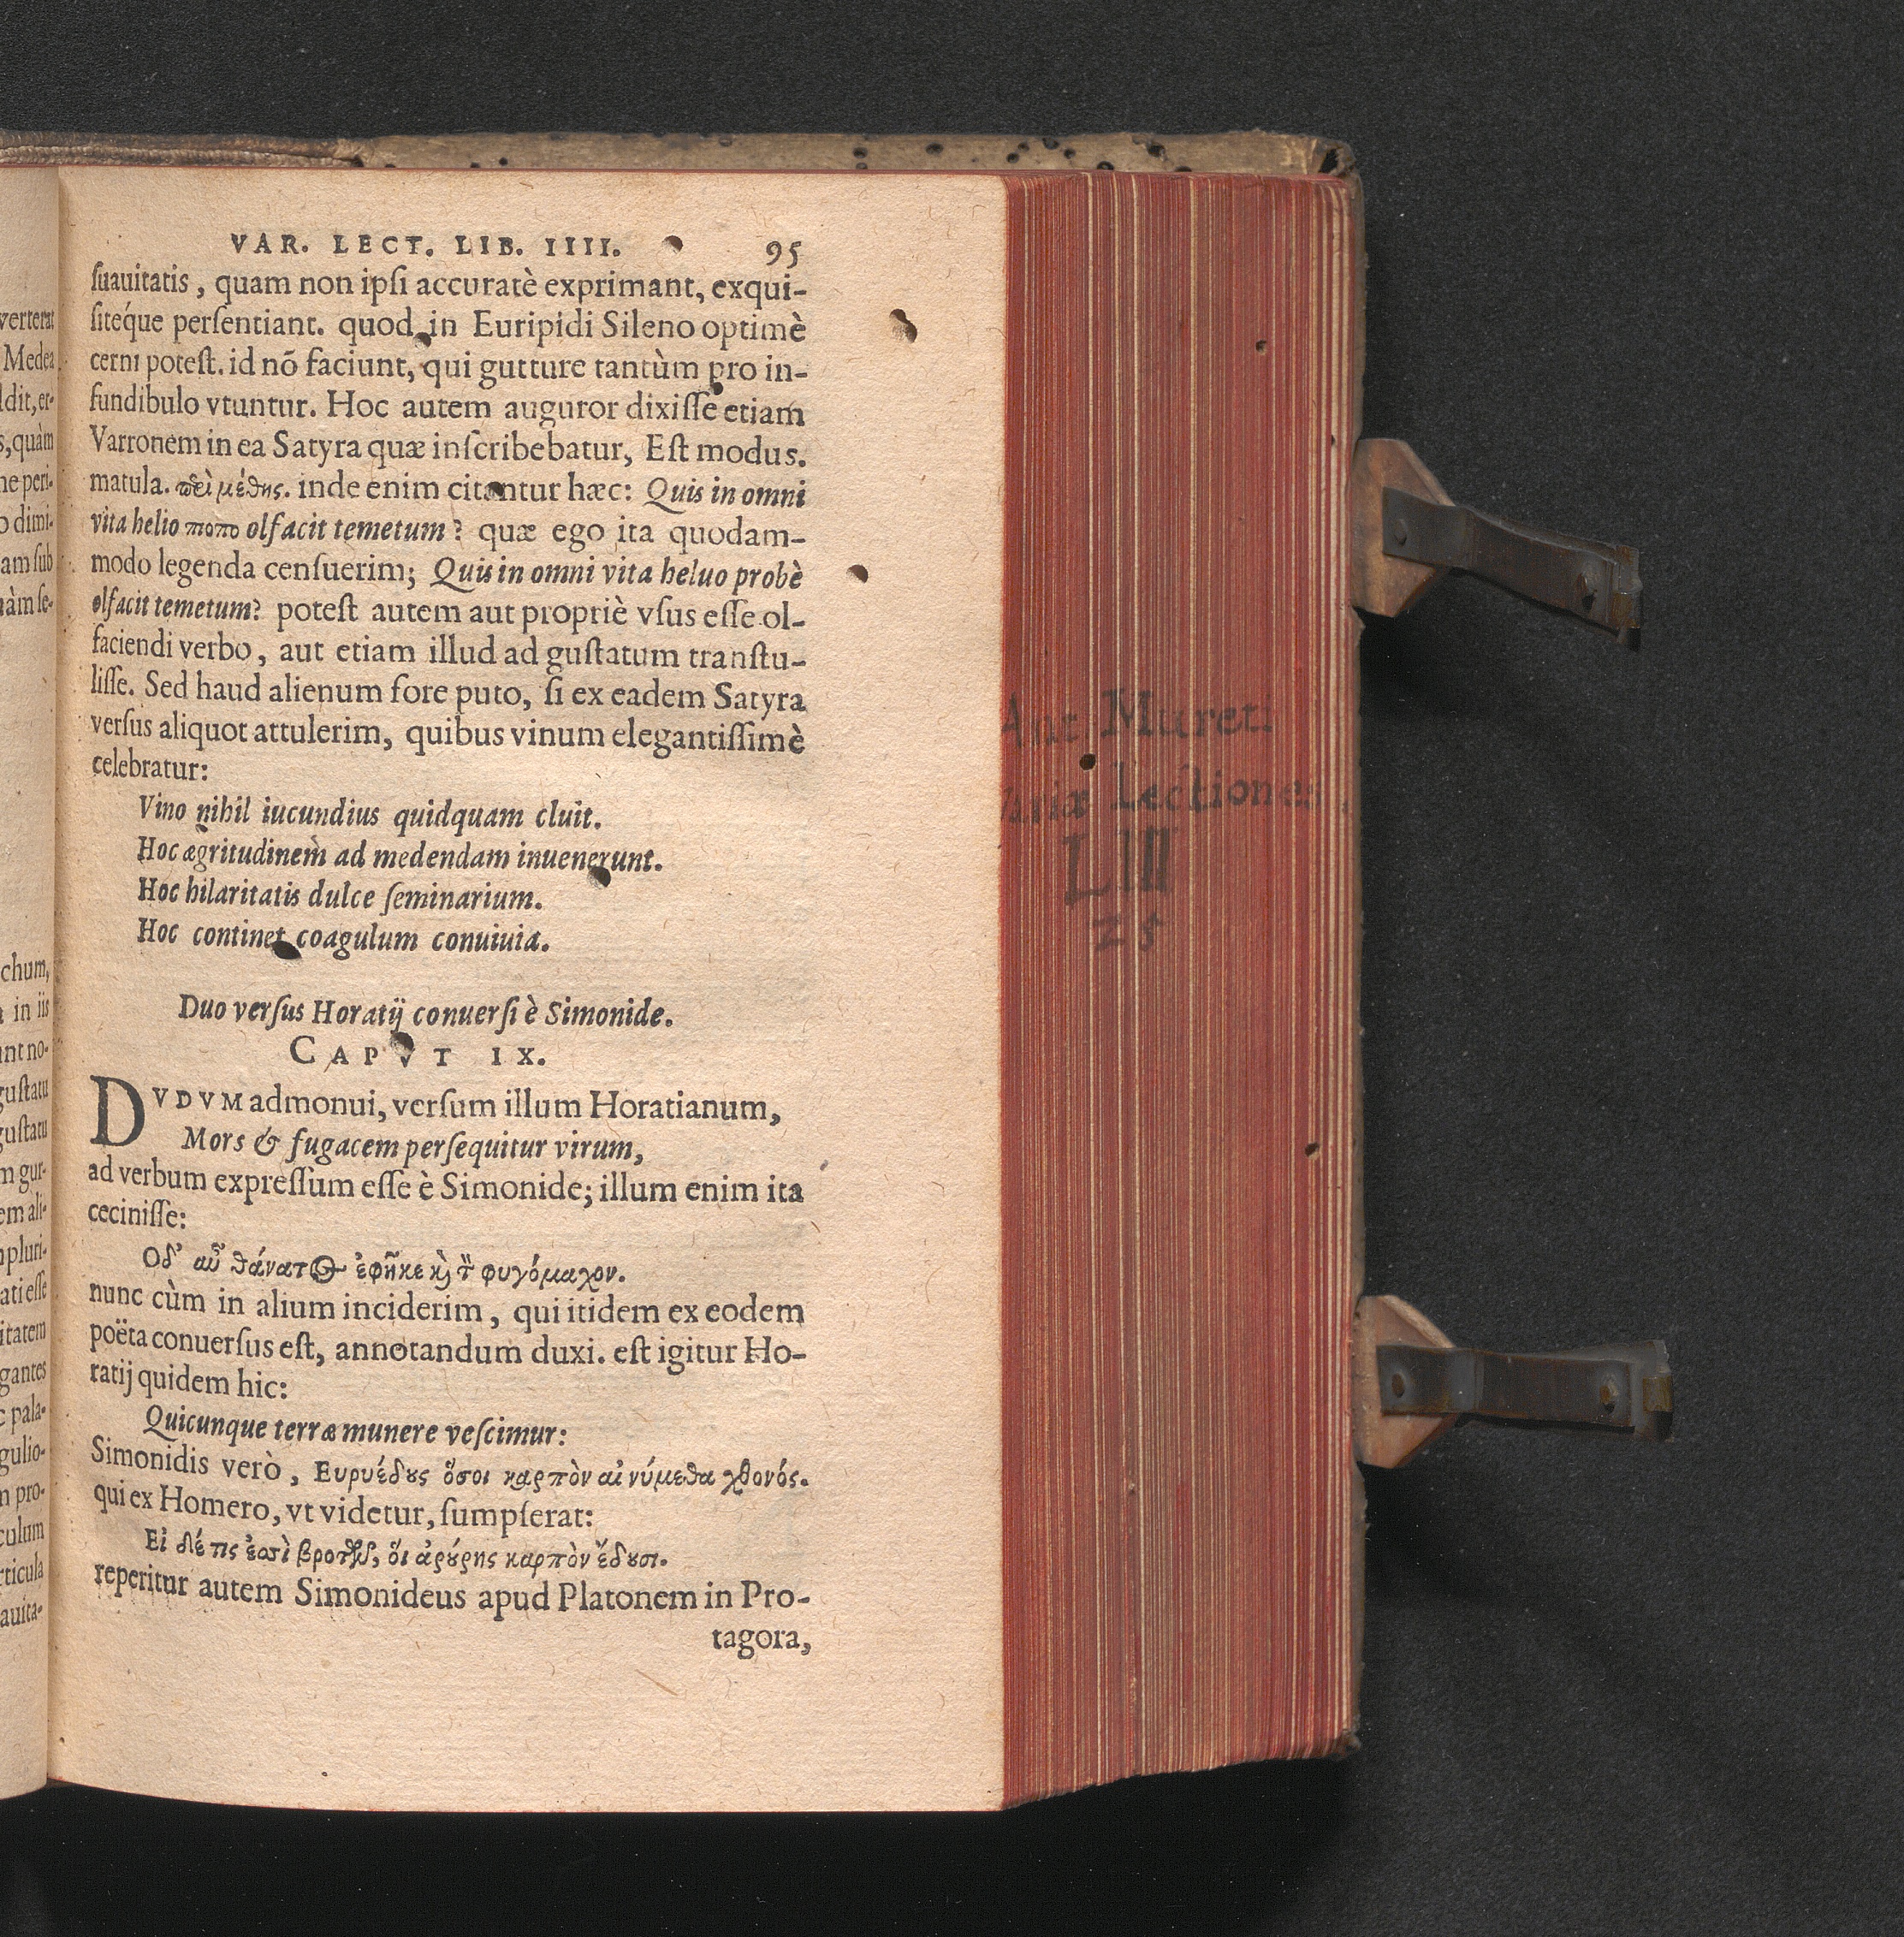 verterat
Medea
ldit, er-
s, quàm
ne peri-
o dimi-
am sub
uàm se-
chum,
in iis
unt no-
gustatu
gustatu
m gur-
em ali-
pluri-
ati esse
itatem
gantes
c pala-
gulio-
n pro-
culum
rticula
auita-
VAR. LECT. LIB. IIII. 95
suauitatis, quam non ipsi accuratè exprimant, exqui-
sitéque persentiant. quod in Euripidi Sileno optimè
cerni potest. id nõ faciunt, qui gutture tantùm pro in-
fundibulo vtuntur. Hoc autem auguror dixisse etiam
Varronem in ea Satyra quæ inscribebatur, Est modus.
matula. πεὶ μέθης. inde enim citantur hæc: Quis in omni
vita helio ποπο olfacit temetum? quæ ego ita quodam-
modo legenda censuerim; Quis in omni vita heluo probè
olfacit temetum? potest autem aut propriè vsus esse ol-
faciendi verbo, aut etiam illud ad gustatum transtu-
lisse. Sed haud alienum fore puto, si ex eadem Satyra
versus aliquot attulerim, quibus vinum elegantissimè
celebratur:
Vino nihil iucundius quidquam cluit.
Hoc ægritudinem ad medendam inuenerunt.
Hoc hilaritatis dulce seminarium.
Hoc continet coagulum conuiuia.
Duo versus Horatij conuersi è Simonide.
CAPVT IX.
DVDVM admonui, versum illum Horatianum,
Mors & fugacem persequitur virum,
ad verbum expressum esse è Simonide; illum enim ita
cecinisse:
Οδ' αὖ θάνατος ἐφῆκε καὶ τὸν φυγόμαχον.
nunc cùm in alium inciderim, qui itidem ex eodem
poëta conuersus est, annotandum duxi. est igitur Ho-
ratij quidem hic:
Quicunque terræ munere vescimur:
Simonidis verò, Ευρυέδους ὅσοι καρπὸν αἰνύμεθα χθονός.
qui ex Homero, vt videtur, sumpserat:
Εἰ δέ τις ἐσσὶ βροτῶν, ὅι ἀρούρης καρπὸν ἔδουσι.
reperitur autem Simonideus apud Platonem in Pro-
tagora,
Ant Mureti
Variæ Lectiones
LIII
25